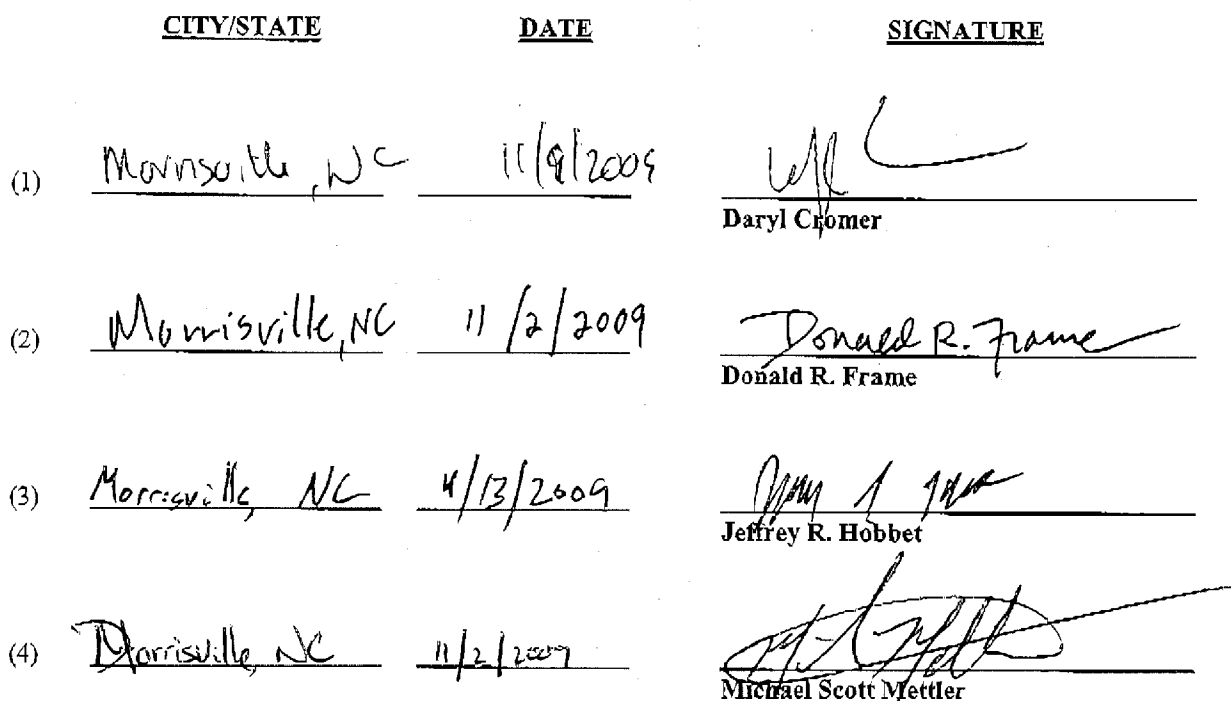 CITY/STATE DATE SIGNATURE
(1) Morrisville, NC 11/9/2009
Daryl Cromer
(2) Morrisville, NC 11/2/2009 Donald R. Frame
Donald R. Frame
(3) Morrisville, NC 11/13/2009
Jeffrey R. Hobbet
(4) Morrisville, NC 11/2/2009
Michael Scott Mettler